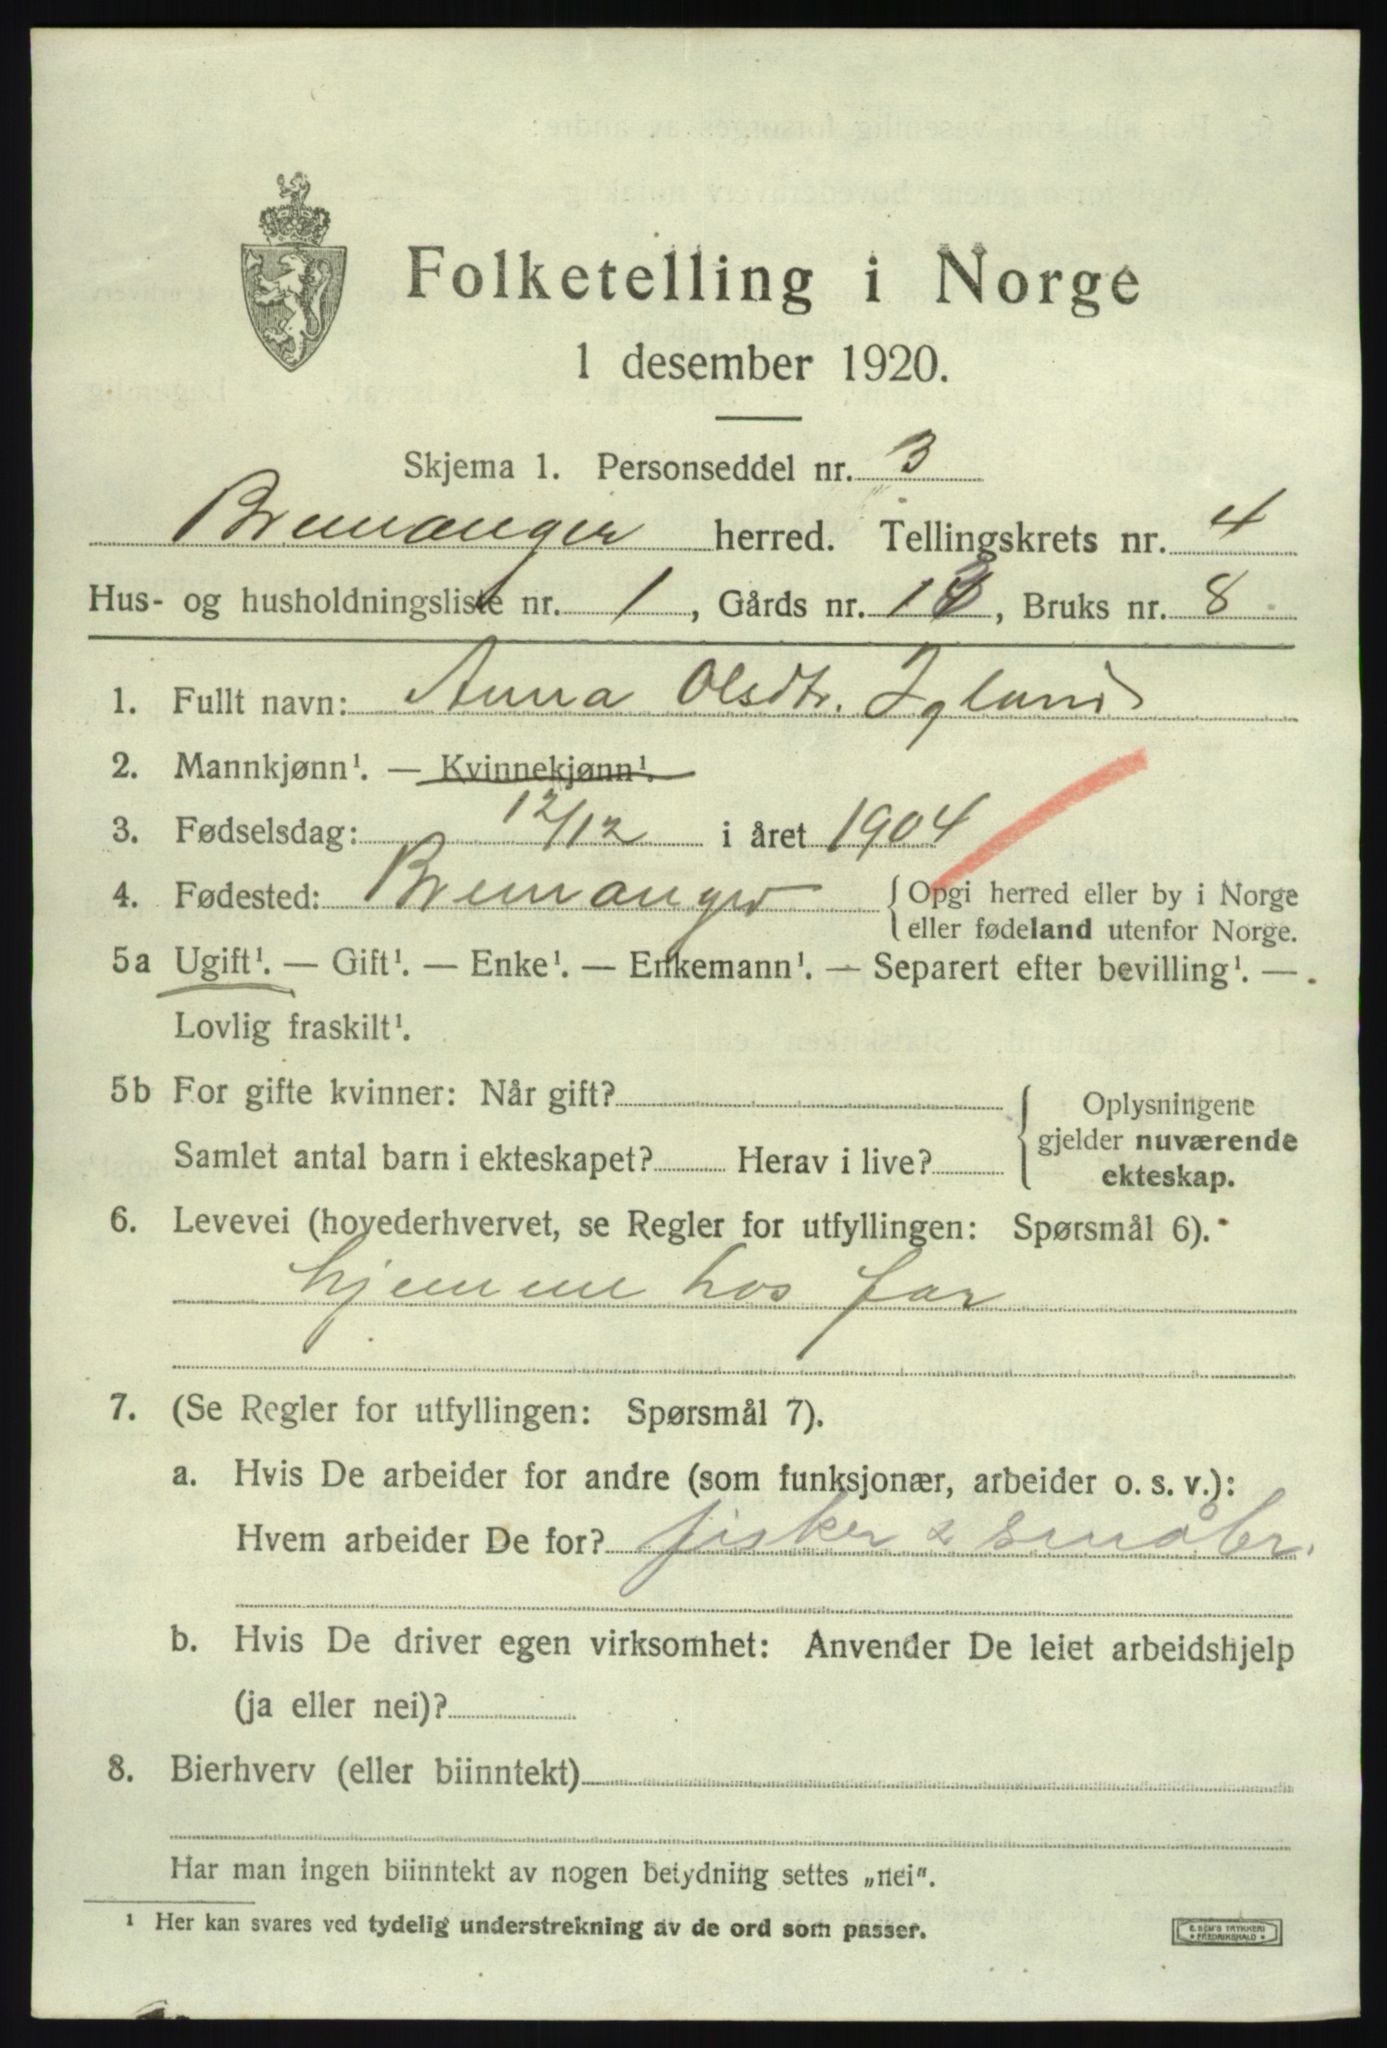 Folketelling i Norge
1 desember 1920.
Skjema 1. Personseddel nr. 3
Bremanger herred. Tellingskrets nr. 4
Hus- og husholdningsliste nr. 1, Gårds nr. 13, Bruks nr. 8
1. Fullt navn: Anna Olsdtr. Igland
2. Mannkjønn¹. — Kvinnekjønn¹.
3. Fødselsdag: 12/12 i året 1904
4. Fødested: Bremanger { Opgi herred eller by i Norge
eller fødeland utenfor Norge.
5a Ugift¹. — Gift¹. — Enke¹. — Enkemann¹. — Separert efter bevilling¹. —
Lovlig fraskilt¹.
5b For gifte kvinner: Når gift?
Samlet antal barn i ekteskapet? Herav i live?
Oplysningene
gjelder nuværende
ekteskap.
6. Levevei (hovederhvervet, se Regler for utfyllingen: Spørsmål 6).
hjemme hos far
7. (Se Regler for utfyllingen: Spørsmål 7).
a. Hvis De arbeider for andre (som funksjonær, arbeider o. s. v.):
Hvem arbeider De for? fisker & småbr.
b. Hvis De driver egen virksomhet: Anvender De leiet arbeidshjelp
(ja eller nei)?
8. Bierhverv (eller biinntekt)
Har man ingen biinntekt av nogen betydning settes „nei".
¹ Her kan svares ved tydelig understrekning av de ord som passer.
E. SEM'S TRYKKERI
FREDRIKSHALD